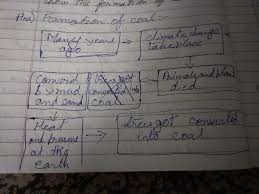 show the formation of
Ans) Formation of coal:-
Many years
ago
Climate change
take place
Animals and plants
died
Converd
by mud
and sand
Heat
and pressure
at this
earth
trees got converted
into coal